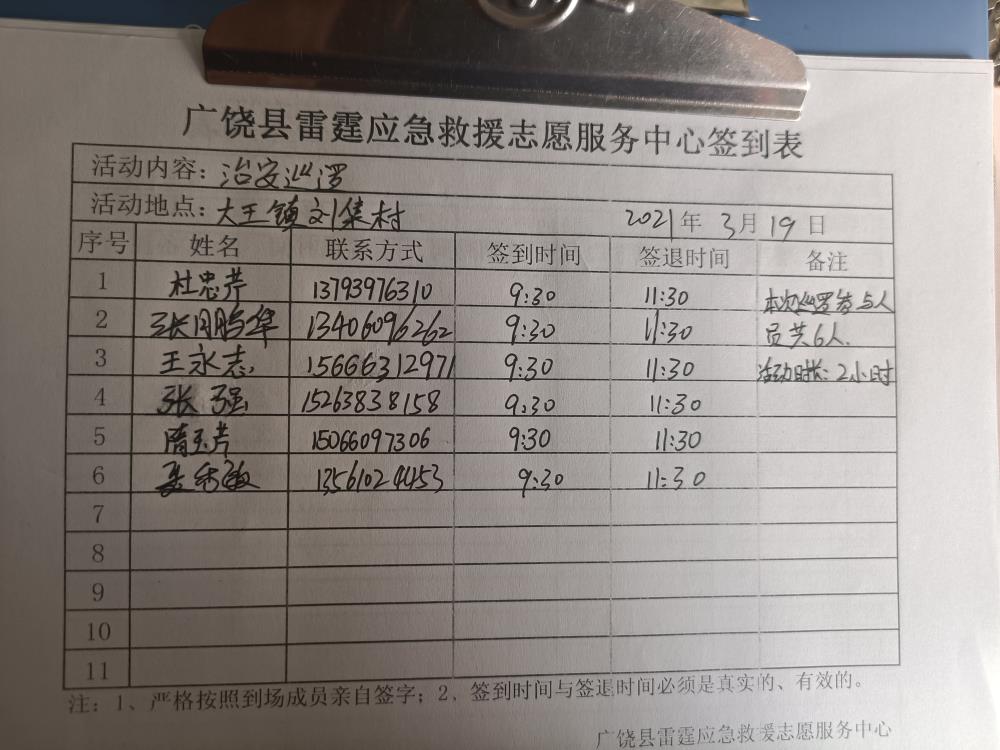 广饶县雷霆应急救援志愿服务中心签到表
活动内容：治安巡逻
活动地点：大王镇刘集村 2021年 3月 19日
序号 姓名 联系方式 签到时间 签退时间 备注
1 杜忠芹 13793976310 9:30 11:30 本次巡罗参与人
2 张月鹏华 13406096262 9:30 11:30 员共6人.
3 王永志 15666312971 9:30 11:30 活动时长：2小时
4 张强 15263838158 9:30 11:30
5 隋玉芹 15066097306 9:30 11:30
6 13561024453 9:30 11:30
7
8
9
10
11
注：1、严格按照到场成员亲自签字；2、签到时间与签退时间必须是真实的、有效的。
广饶县雷霆应急救援志愿服务中心